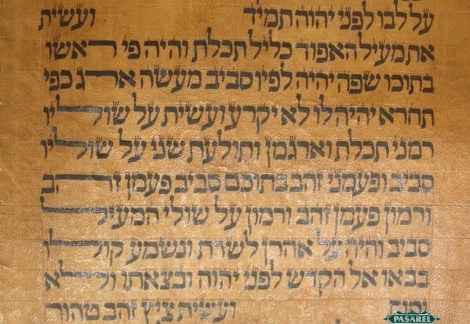 על לבו לפני יהוה תמיד ועשית
את מעיל האפוד כליל תכלת והיה פי ראשו
בתוכו שפה יהיה לפיו סביב מעשה ארג כפי
תחרא יהיה לו לא יקרע ועשית על שוליו
רמני תכלת וארגמן ותולעת שני על שוליו
סביב ופעמני זהב בתוכם סביב פעמן זהב
ורמון פעמן זהב ורמון על שולי המעיל
סביב והיה על אהרן לשרת ונשמע קולו
בבאו אל הקדש לפני יהוה ובצאתו ולא
ימות ועשית ציץ זהב טהור
PASAREL